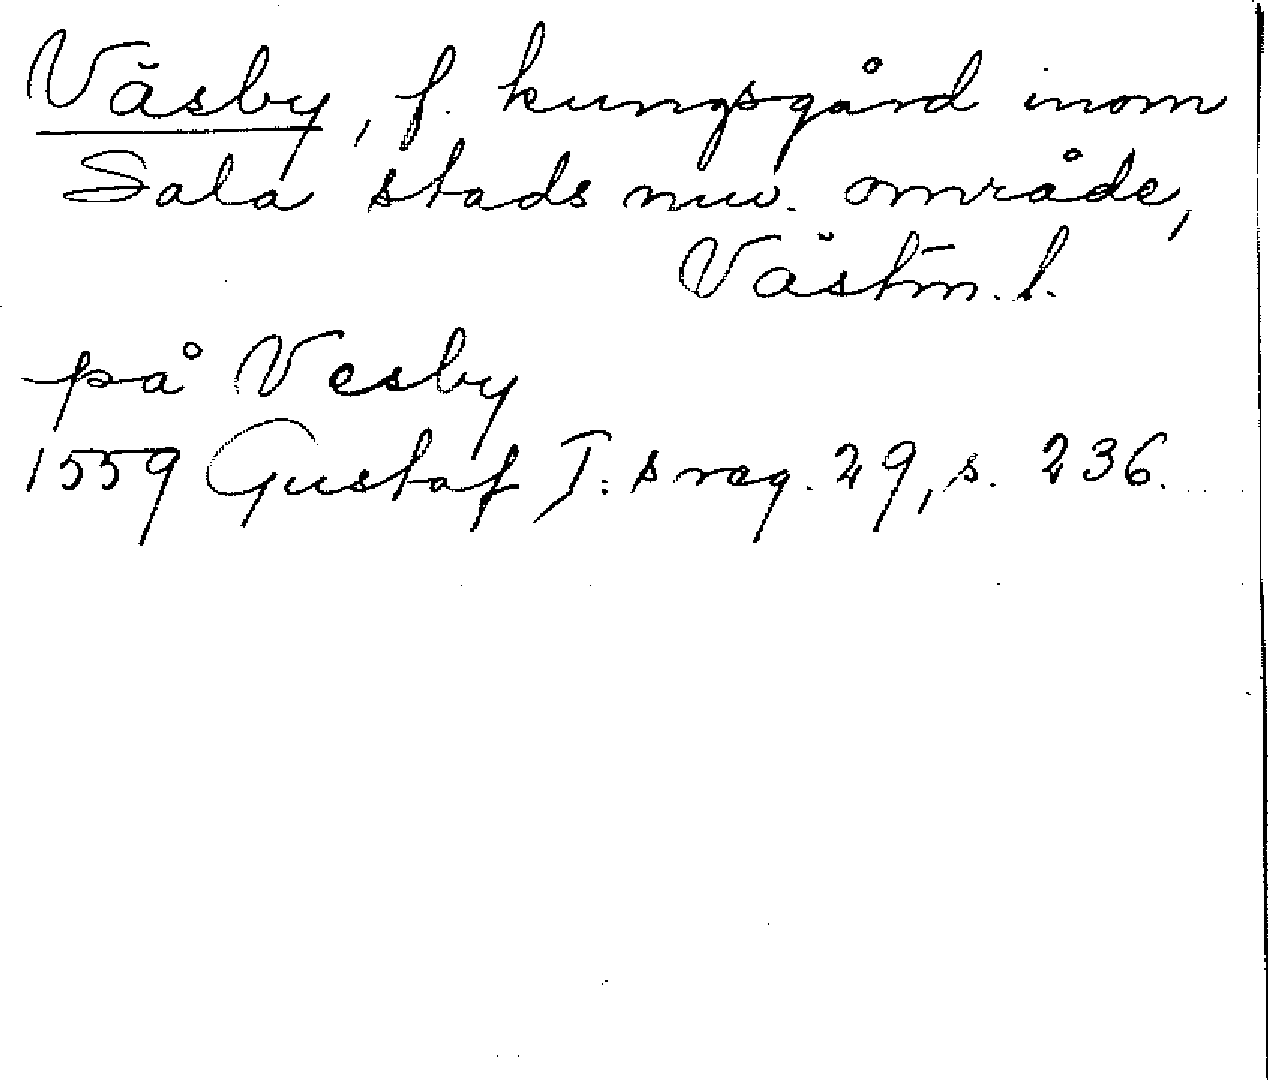 Väsby, f. kungsgård inom
Sala stads nuv. område,
Västm. l.
på Vesby
1559 Gustaf I:s reg. 29, s. 236.